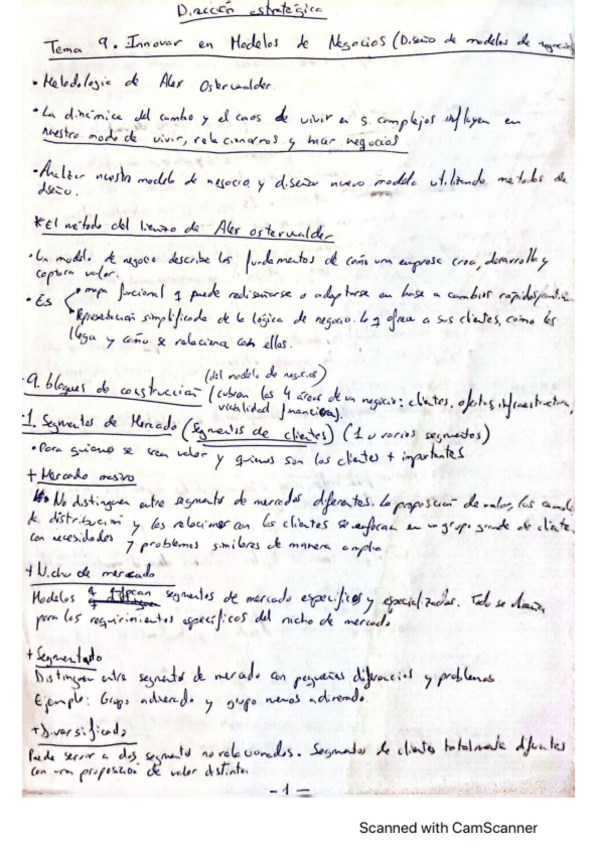 Dirección estratégica
Tema 9. Innovar en Modelos de Negocios (Diseño de modelos de negocio)
• Metodología de Alex Osterwalder.
• La dinámica del cambio y el caos de vivir en s. complejos influyen en
nuestro modo de vivir, relacionarnos y hacer negocios
• Analizar nuestro modelo de negocio y diseñar nuevo modelo utilizando metodos de
diseño.
* El método del lienzo de Alex Osterwalder
• Un modelo de negocio describe los fundamentos de cómo una empresa crea, desarrolla y
captura valor.
• Es
mapa funcional q puede rediseñarse o adaptarse en base a cambios rápidos
Representación simplificada de la lógica de negocio. Lo q ofrece a sus clientes, cómo les
llega y cómo se relaciona con ellos.
(del modelo de negocios)
9. bloques de construcción (cubren las 4 áreas de un negocio: clientes, ofertas, infraestructura,
viabilidad financiera).
1. Segmentos de Mercado (segmentos de clientes) (1 o varios segmentos)
• Para quienes se crea valor y quienes son los clientes + importantes
+ Mercado masivo
No distinguen entre segmento de mercados diferentes. La proposición de valor, los canales
de distribución y las relaciones con los clientes se enfocan en un grupo grande de clientes
con necesidades y problemas similares de manera amplia.
+ Nicho de mercado
Modelos q segmentos de mercado específicos y especializados. Todo se diseña
para los requirimientos específicos del nicho de mercado.
+ Segmentado
Distinguen entre segmento de mercado con pequeñas diferencias y problemas
Ejemplo: Grupo adinerado y grupo menos adinerado.
+ Diversificado
Puede servir a dos segmento no relacionados. Segmentos de cliente totalmente diferentes
con una proposición de valor distinta
- 1 -
Scanned with CamScanner